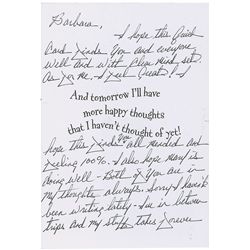 Barbara,
I hope this Quick
Card finds You and everyone
well and with Clear mind set.
As for me, I feel Great! I
And tomorrow I'll have
more happy thoughts
that I haven't thought of yet!
hope this finds You all mended and
feeling 100%. I also hope Mary is
doing well - Both of You are in
my thoughts always. Sorry I haven't
been writing lately - I've in between
trips and my stuff takes forever